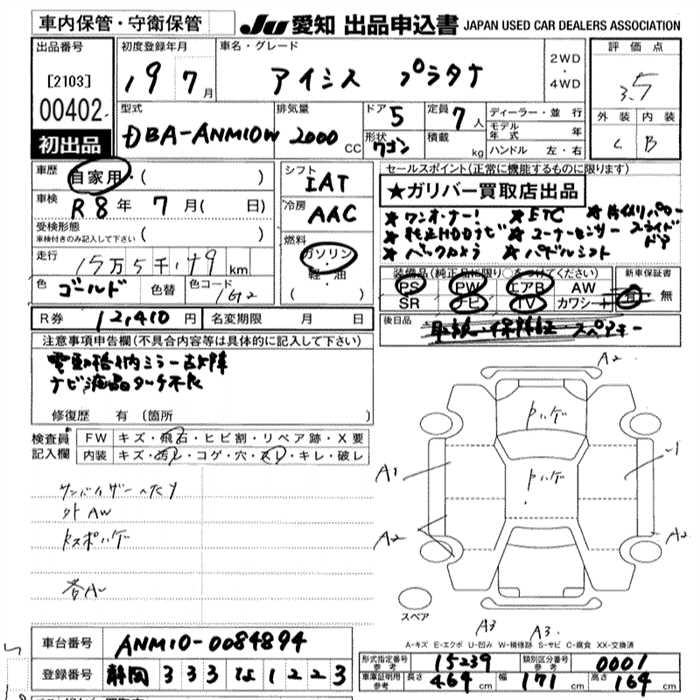 車内保管・守衛保管
JU 愛知 出品申込書 JAPAN USED CAR DEALERS ASSOCIATION
出品番号
[2103]
00402
初出品
初度登録年月
19 7月
車名・グレード
アイシス プラタナ
2WD
・
4WD
評価点
3.5
外装 内装
C B
型式
DBA-ANM10W
排気量
2000 CC
ドア 5
形状 ワゴン
定員 7人
積載 kg
ディーラー・並行
モデル年式 年
ハンドル 左・右
車歴 自家用・( )
車検 R8年 7月( 日)
受検形態
車検付きのみ記入して下さい ( )
走行 15万5千・19 km
色 ゴールド 色替 色コード
R券 12,410円 名変期限 月 日
シフト
IAT
冷房
AAC
燃料
ガソリン
・
軽・油
( )
セールスポイント(正常に機能するものに限ります)
★ガリバー買取店出品
★ワンオーナー! ★ETC ★片側パワースライドドア
★純正HDDナビ ★コーナーセンサー
★バックカメラ ★パドルシフト
装備品(純正品に限り○をつけてください)
PS PW エアB AW
SR ナビ TV カワシート
新車保証書
有・無
後日品 取説・保証証・スペアキー
注意事項申告欄(不具合内容等は具体的に記入して下さい)
電動格納ミラー故障
ナビ液晶タッチ不良
修復歴 有(箇所 )
検査員記入欄
FW キズ・飛石・ヒビ割・リペア跡・X要
内装 キズ・汚レ・コゲ・穴・スレ・キレ・破レ
サンバイザーヘタリ
外AW
A2
トハゲ
トハゲ
A1
A2
A2
スペア
A3 A3
A-キズ E-エクボ U-凹み W-補修跡 S-サビ C-腐食 XX-交換済
車台番号 ANM10-0084894
登録番号 静岡 333 な 1223
形式指定番号 参考 15239 類別区分番号 参考 0001
車庫証明用 参考 長さ 464 cm 幅 171 cm 高さ 164 cm